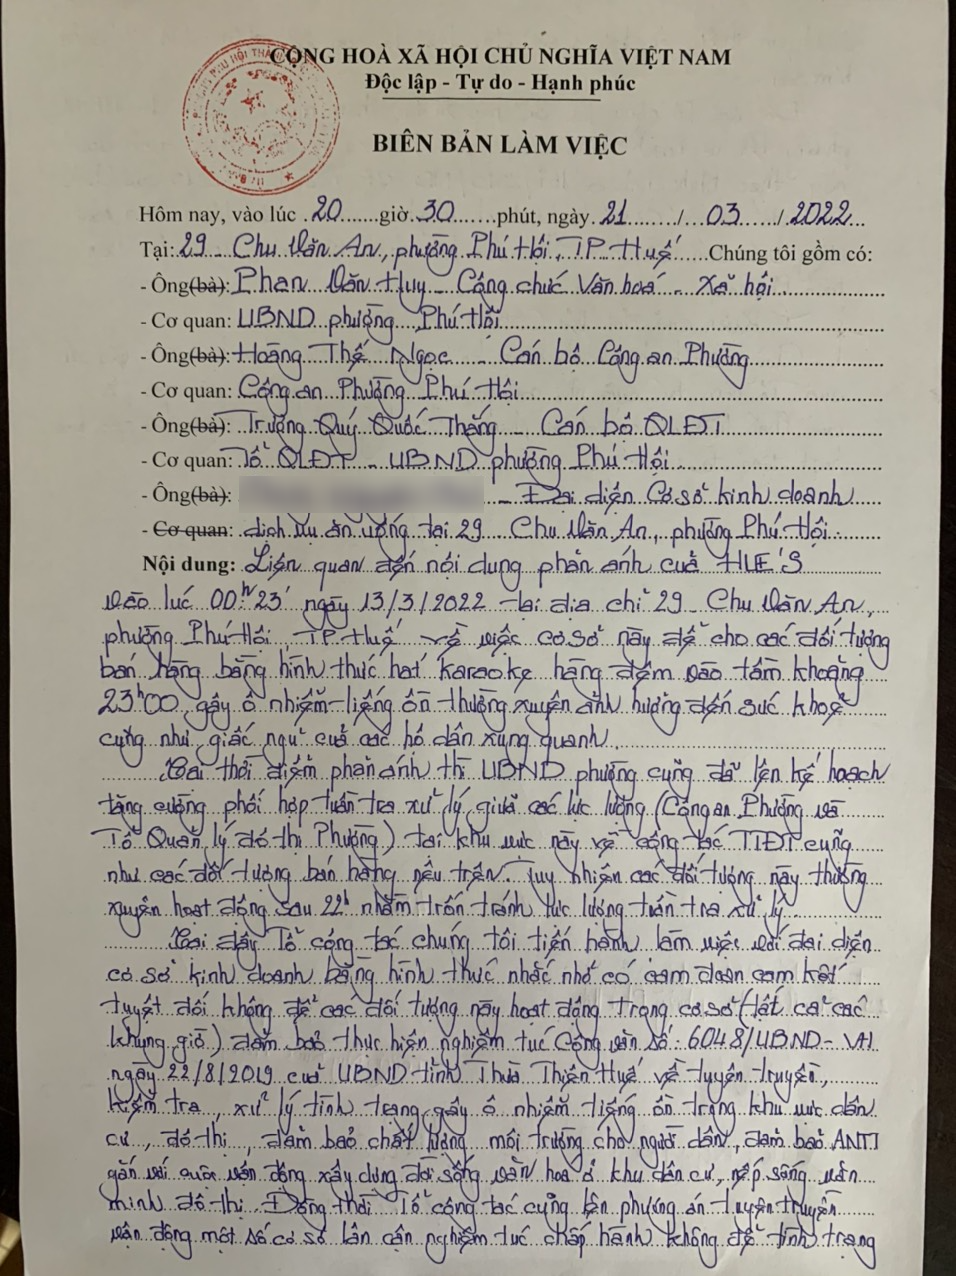 CỘNG HOÀ XÃ HỘI CHỦ NGHĨA VIỆT NAM
Độc lập - Tự do - Hạnh phúc
BIÊN BẢN LÀM VIỆC
Hôm nay, vào lúc .20.......giờ .30.......phút, ngày .21......../...03...../.2022...
Tại: 29 Chu Văn An, phường Phú Hội, TP Huế ......Chúng tôi gồm có:
- Ông(bà): Phan Văn Huy - Công chức Văn hoá - Xã hội
- Cơ quan: UBND phường Phú Hội
- Ông(bà): Hoàng Thế Ngọc - Cán bộ Công an Phường
- Cơ quan: Công an Phường Phú Hội
- Ông(bà): Trương Quý Quốc Thắng - Cán bộ QLĐT
- Cơ quan: Tổ QLĐT - UBND phường Phú Hội
- Ông(bà): - Đại diện Cơ sở kinh doanh
- Cơ quan: dịch vụ ăn uống tại 29 Chu Văn An, phường Phú Hội.
Nội dung: Liên quan đến nội dung phản ánh của HUE'S
vào lúc 00h23' ngày 13/3/2022 tại địa chỉ 29 Chu Văn An,
phường Phú Hội, TP Huế về việc cơ sở này để cho các đối tượng
bán hàng bằng hình thức hát karaoke hàng đêm vào tầm khoảng
23h00, gây ô nhiễm tiếng ồn thường xuyên ảnh hưởng đến sức khoẻ
cũng như giấc ngủ của các hộ dân xung quanh.
Tại thời điểm phản ánh thì UBND phường cũng đã lên kế hoạch
tăng cường phối hợp tuần tra xử lý giữa các lực lượng (Công an Phường và
Tổ Quản lý đô thị Phường) tại khu vực này về công tác TTĐT cũng
như các đối tượng bán hàng nêu trên. Tuy nhiên các đối tượng này thường
xuyên hoạt động sau 22h nhằm trốn tránh lực lượng tuần tra xử lý.
Tại đây Tổ công tác chúng tôi tiến hành làm việc với đại diện
cơ sở kinh doanh bằng hình thức nhắc nhở có cam đoan cam kết
tuyệt đối không để các đối tượng này hoạt động trong cơ sở (tất cả các
khung giờ) đảm bảo thực hiện nghiêm túc Công văn số: 6048/UBND-VH
ngày 22/8/2019 của UBND tỉnh Thừa Thiên Huế về tuyên truyền,
kiểm tra, xử lý tình trạng gây ô nhiễm tiếng ồn trong khu vực dân
cư, đô thị, đảm bảo chất lượng môi trường cho người dân, đảm bảo ANTT
gắn với cuộc vận động xây dựng đời sống văn hoá ở khu dân cư, nếp sống văn
minh đô thị. Đồng thời Tổ công tác cũng lên phương án tuyên truyền
vận động một số cơ sở lân cận nghiêm túc chấp hành không để tình trạng